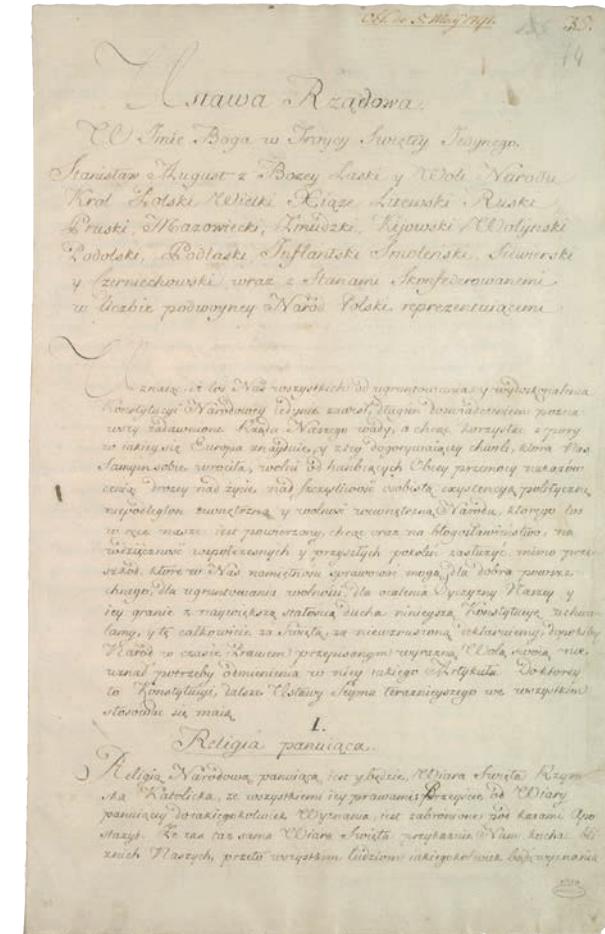 35.
Ustawa Rządowa.
W Imie Boga w Troycy Swiętey Jedynego.
Stanisław August z Bozey Łaski y Woli Narodu
Król Polski Wielki Xiąze Litewski Ruski
Pruski, Mazowiecki, Zmudzki, Kijowski Wołyński
Podolski, Podlaski, Inflantski Smoleński, Siewierski
y Czerniechowski wraz z Stanami Skonfederowanemi
w liczbie podwoyney Naród Polski reprezentuiącemi
Uznaiąc, iż los Nas wszystkich od ugruntowania y wydoskonalenia
Konstytucyi Narodowey iedynie zawisł, długim doswiadczeniem pozna
wszy zadawnione Rządu Naszego wady, a chcąc korzystać z pory
w iakiey się Europa znayduie, y z tey dogorywaiącey chwili, która Nas
Samym sobie wrociła, wolni od hańbiących Obcey przemocy nakazów
ceniąc drozey nad zycie, nad szczęsliwość osobistą, exystencyą polityczną
niepodległosc zewnętrzną y wolność wewnętrzną Narodu, ktorego los
w ręce nasze iest powierzony, chcąc oraz na błogosławieństwo, na
wdzięczność współczesnych y przyszłych pokoleń zasłużyc, mimo prze
szkod, ktore w Nas namiętnosci sprawować mogą, dla dobra powsze
chnego, dla ugruntowania wolności, dla ocalenia Oyczyzny Naszey y
iey granic z naywiększą stałością ducha ninieyszą Konstytucyę uchwa
lamy, y tę całkowicie za swiętą, za niewzruszoną deklaruiemy, dopokiby
Naród w czasie Prawem przepisanym wyrazną Wolą swoią nie
uznał potrzeby odmienienia w niey iakiego Artykułu. Do ktorey
to Konstytucyi, dalsze Ustawy Seymu teraznieyszego we wszystkim
stosować się maią.
I.
Religia panuiąca.
Religią Narodową panuiącą iest y będzie, Wiara Swięta Rzym
ska Katolicka, ze wszystkiemi iey prawami; Przeyście od Wiary
panuiącey do iakiegokolwiek Wyznania, iest zabronione pod karami Apo
stazyi. Ze zas taz sama Wiara Swięta przykazuie Nam kochać bli
znich Naszych, przeto wszystkim ludziom iakiegokolwiek bądz wyznania